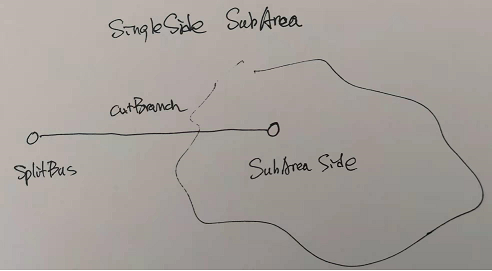 SingleSide SubArea
cutBranch
SplitBus
SubArea Side